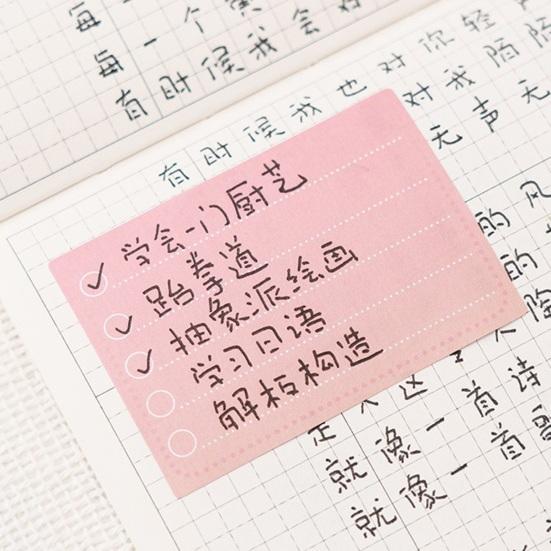 每
每一个
有时候我会
有时候我也对你轻声
对我陌陌
无声无
学会一门厨艺
跆拳道
抽象派绘画
学习日语
解析构造
的风
的
这
就像一首诗
就像一首